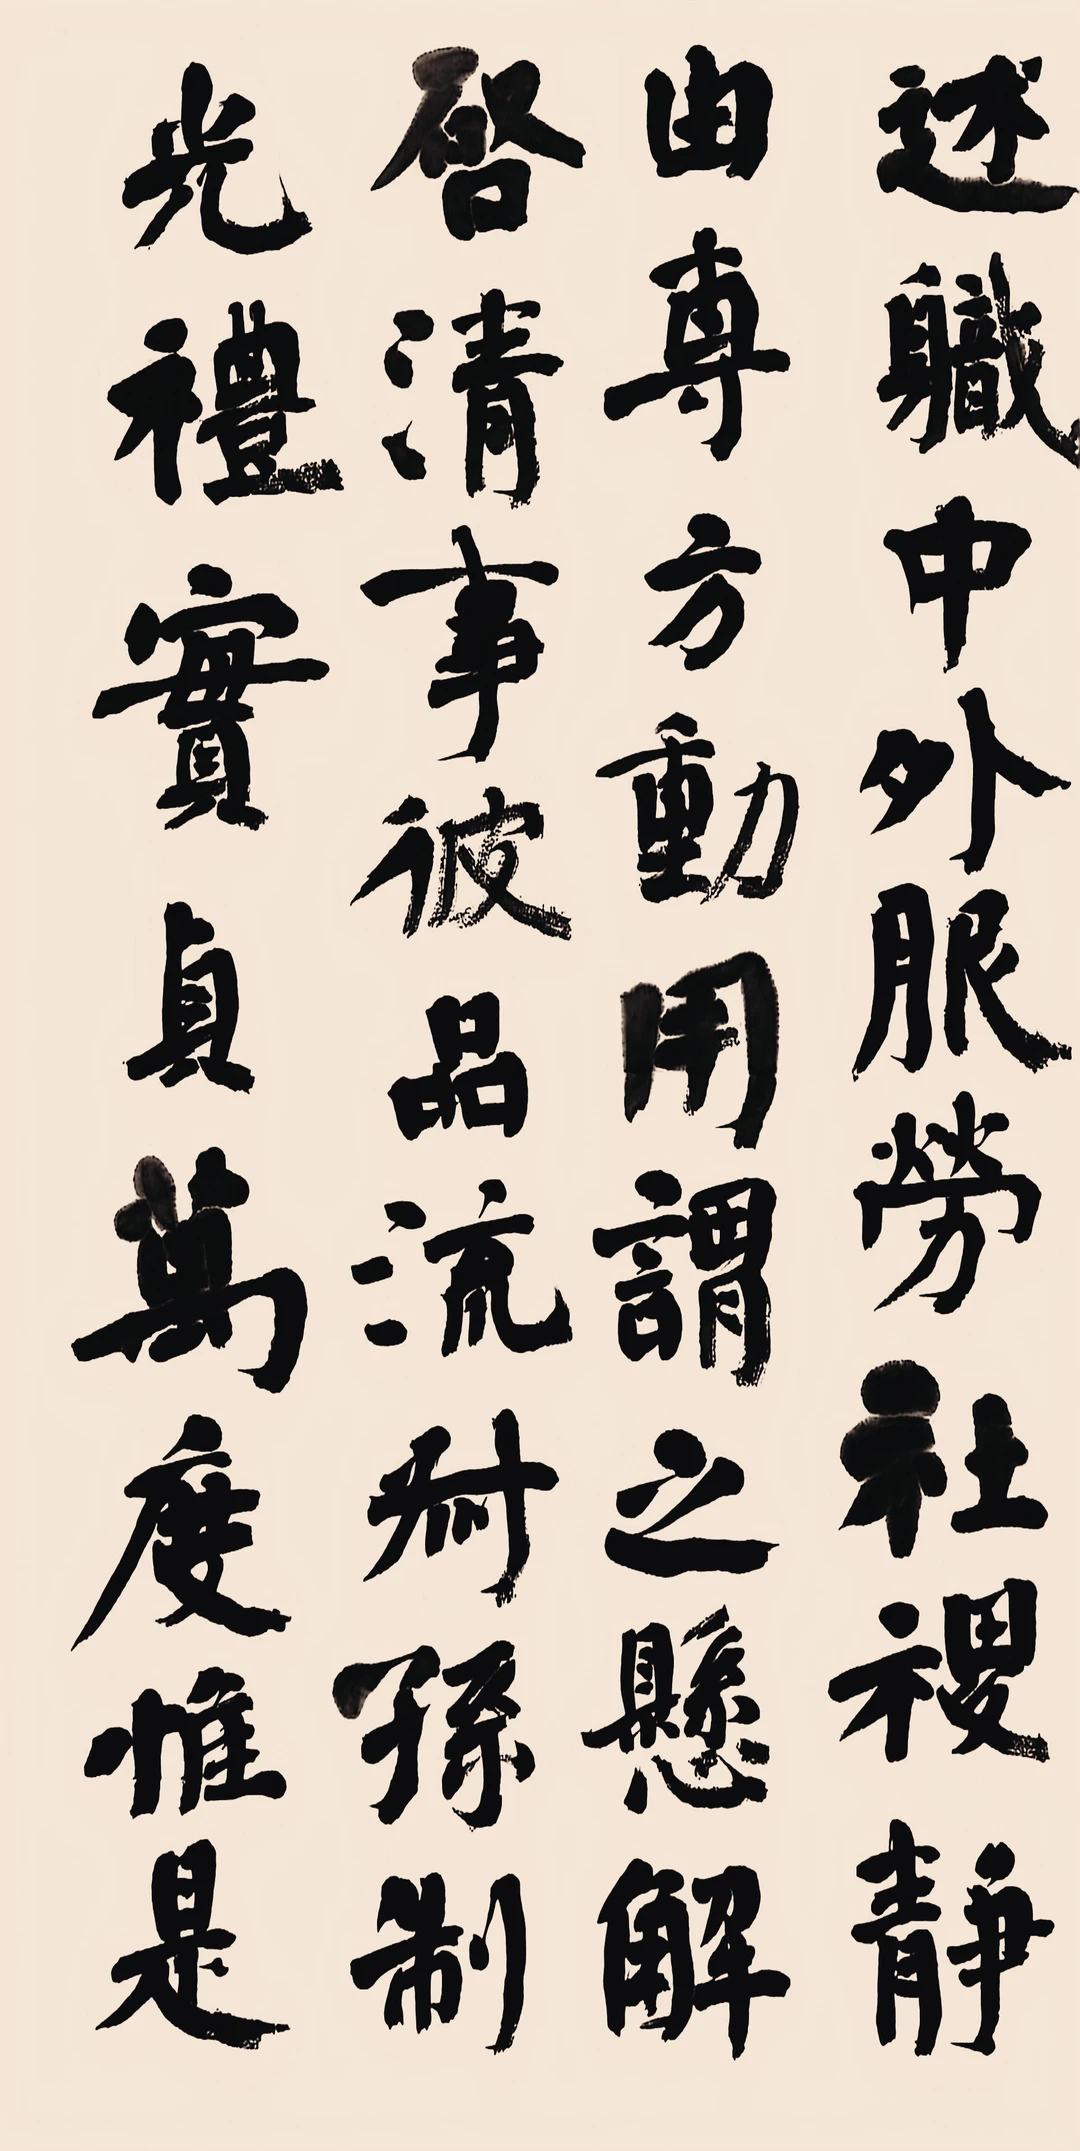 述職中外服勞社稷靜
由專方動用謂之懸解
啓清事彼品流附孫制
光禮實貞萬度惟是